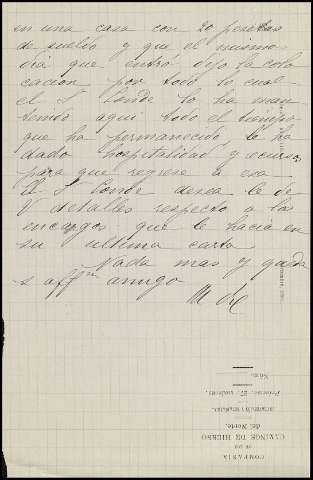 en una casa con 20 pesetas
de sueldo y que el mismo
dia que entró dejo la colo
cacion por todo lo cual
el Sr Conde lo ha man
tenido aqui todo el tiempo
que ha permanecido le ha
dado hospitalidad y recursos
para que regrese a esa
El Sr Conde desea le de
V detalles respecto a los
encargos que le hacia en
su ultima carta.
Nada mas y queda
s affmo amigo
COMPAÑIA
DE LOS
CAMINOS DE HIERRO
del Norte.
Núm.